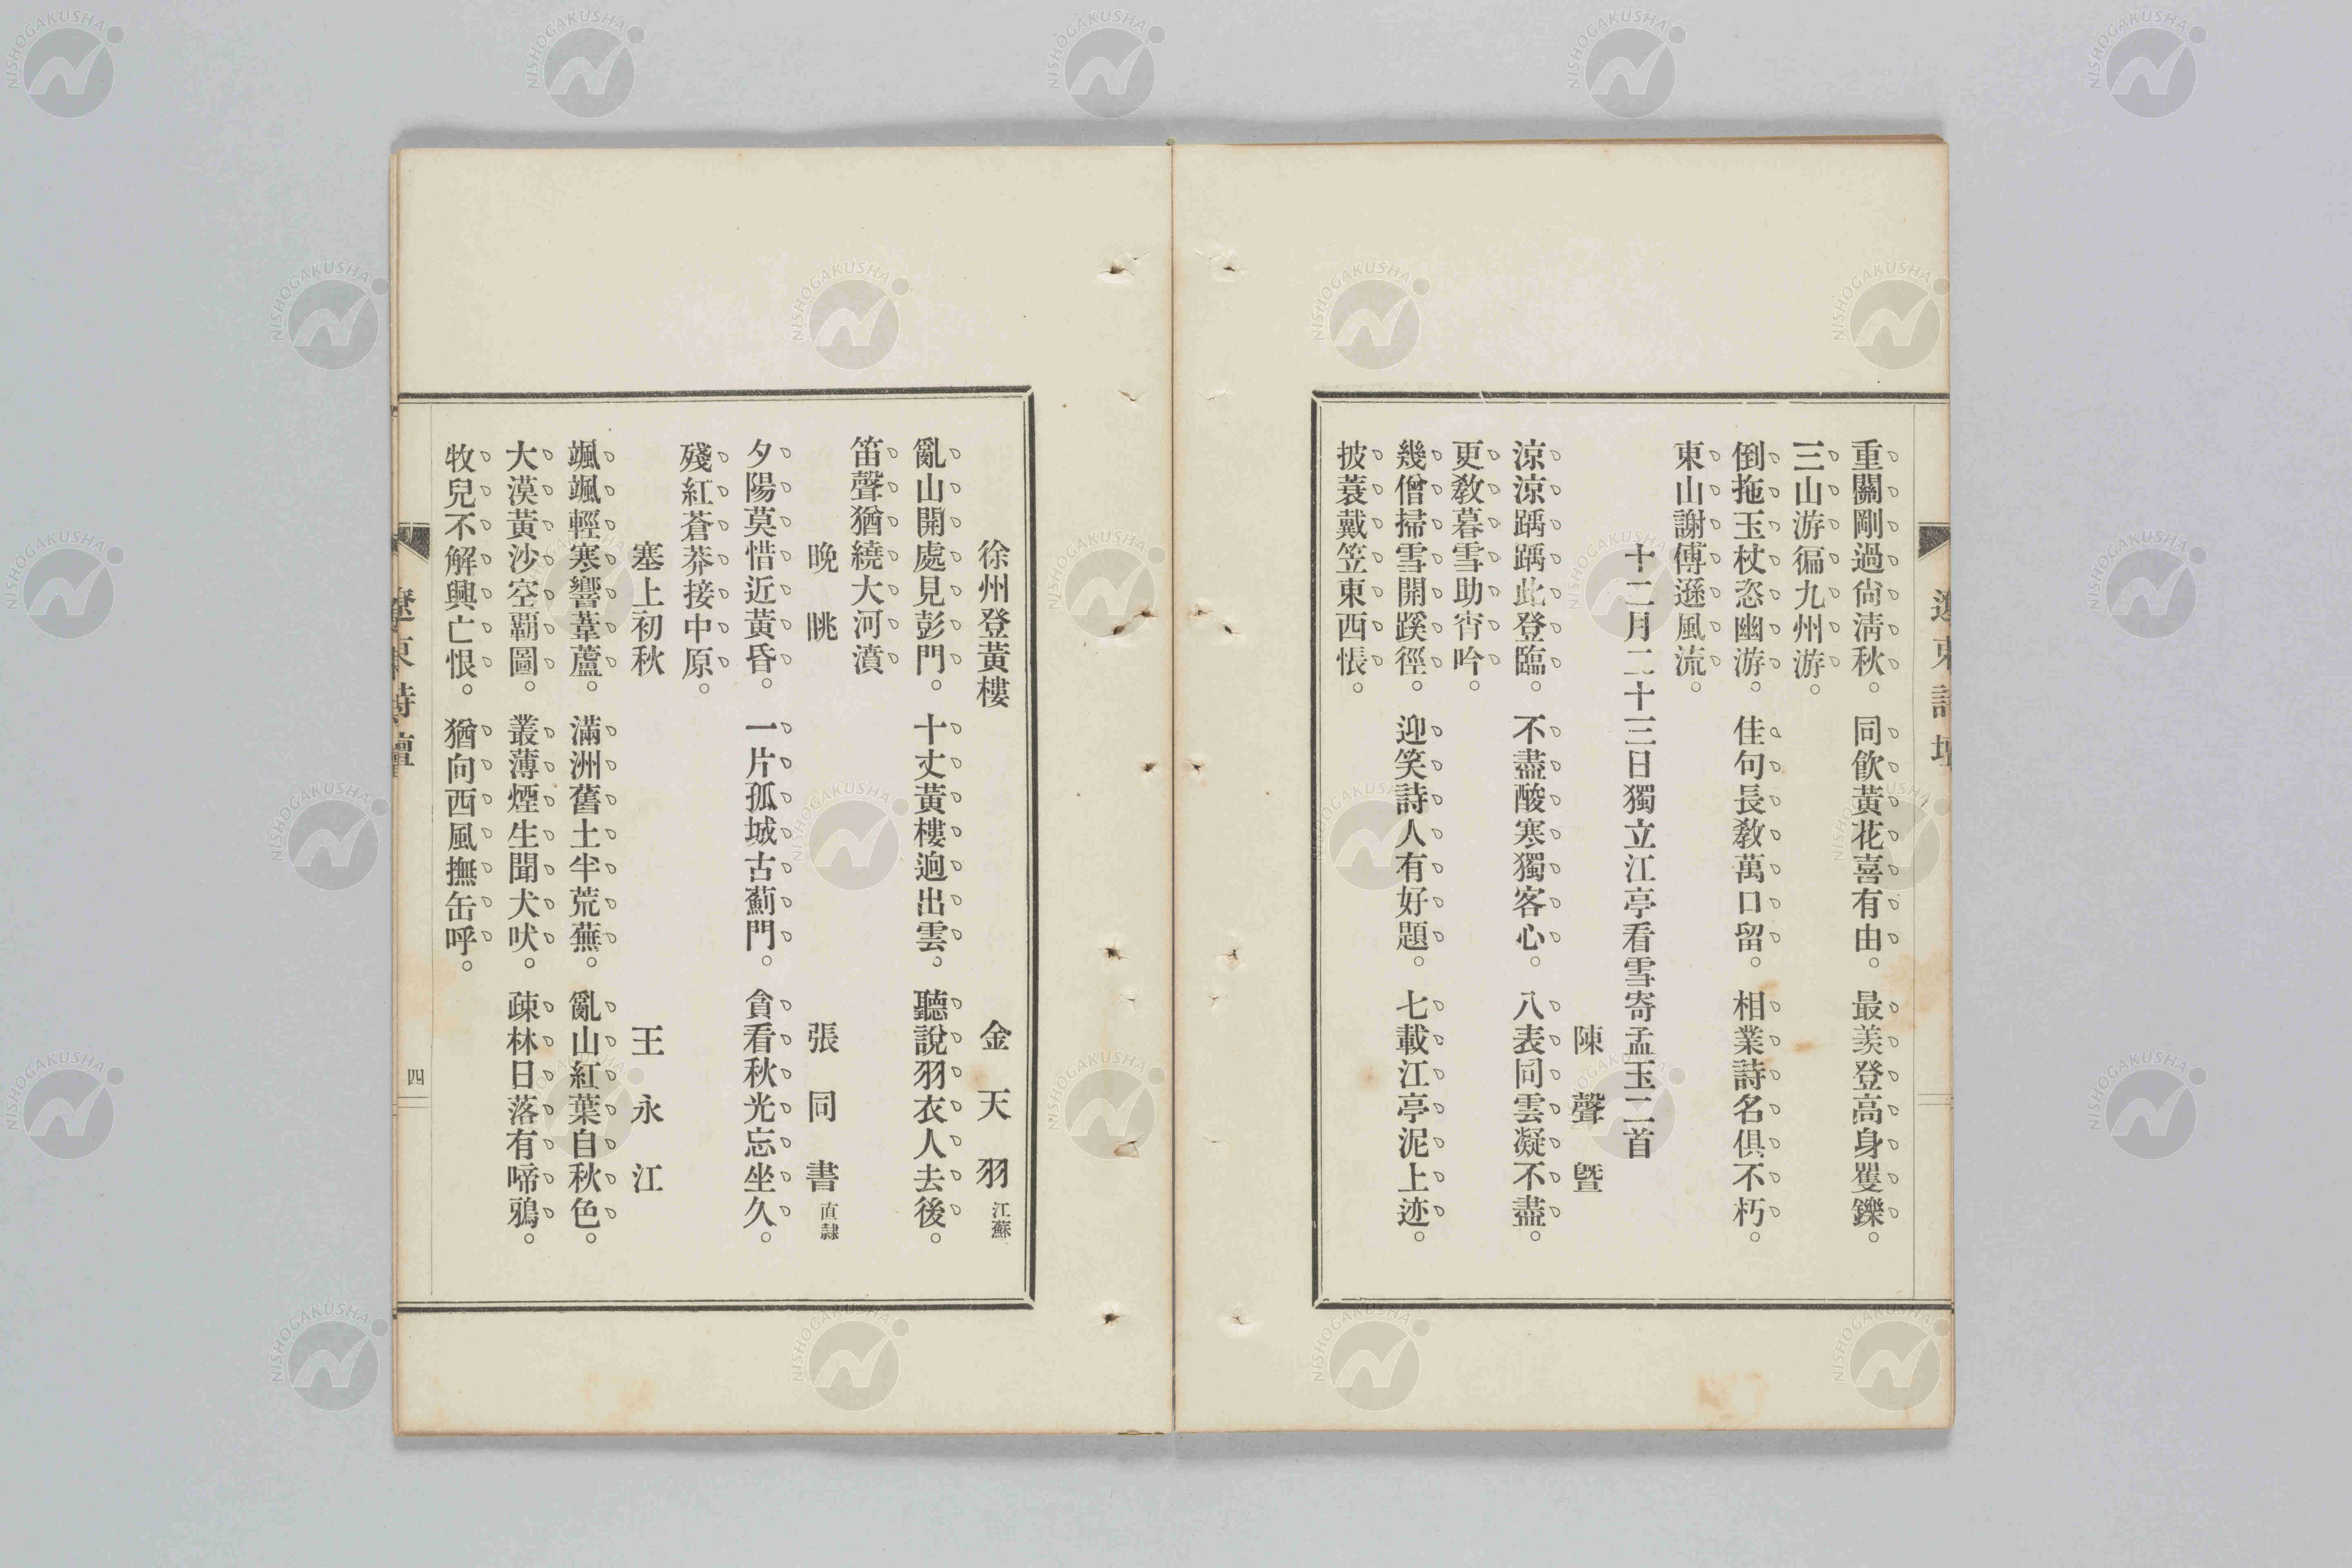 重關剛過尙淸秋。同飮黃花喜有由。最羨登高身矍鑠。
三山游徧九州游。
倒拖玉杖恣幽游。佳句長敎萬口留。相業詩名俱不朽。
東山謝傅遜風流。
十二月二十三日獨立江亭看雪寄孟玉二首
陳聲曁
涼涼踽踽此登臨。不盡酸寒獨客心。八表同雲凝不盡。
更敎暮雪助宵吟。
幾僧掃雪開蹊徑。迎笑詩人有好題。七載江亭泥上迹。
披蓑戴笠東西悵。
徐州登黃樓 金天羽 江蘇
亂山開處見彭門。十丈黃樓逈出雲。聽說羽衣人去後。
笛聲猶繞大河濆
晩眺 張同書 直隸
夕陽莫惜近黃昏。一片孤城古薊門。貪看秋光忘坐久。
殘紅蒼莽接中原。
塞上初秋 王永江
颯颯輕寒響葦蘆。滿洲舊土半荒蕪。亂山紅葉自秋色。
大漠黃沙空覇圖。叢薄煙生聞犬吠。疎林日落有啼鴉。
牧兒不解興亡恨。猶向西風撫缶呼。
遼東詩壇
四
NISHOGAKUSHA